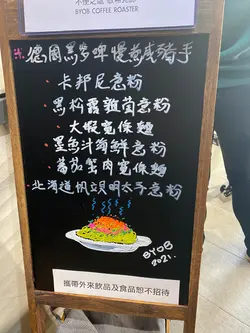 不便之處 敬希見諒
BYOB COFFEE ROASTER
※德國黑麥啤慢煮咸豬手
・卡邦尼意粉
・黑松露雜菌意粉
・大蝦寬條麵
・墨魚汁海鮮意粉
・蕃茄蟹肉寬條麵
・北海道帆立明太子意粉
BYOB
2021.
攜帶外來飲品及食品恕不招待